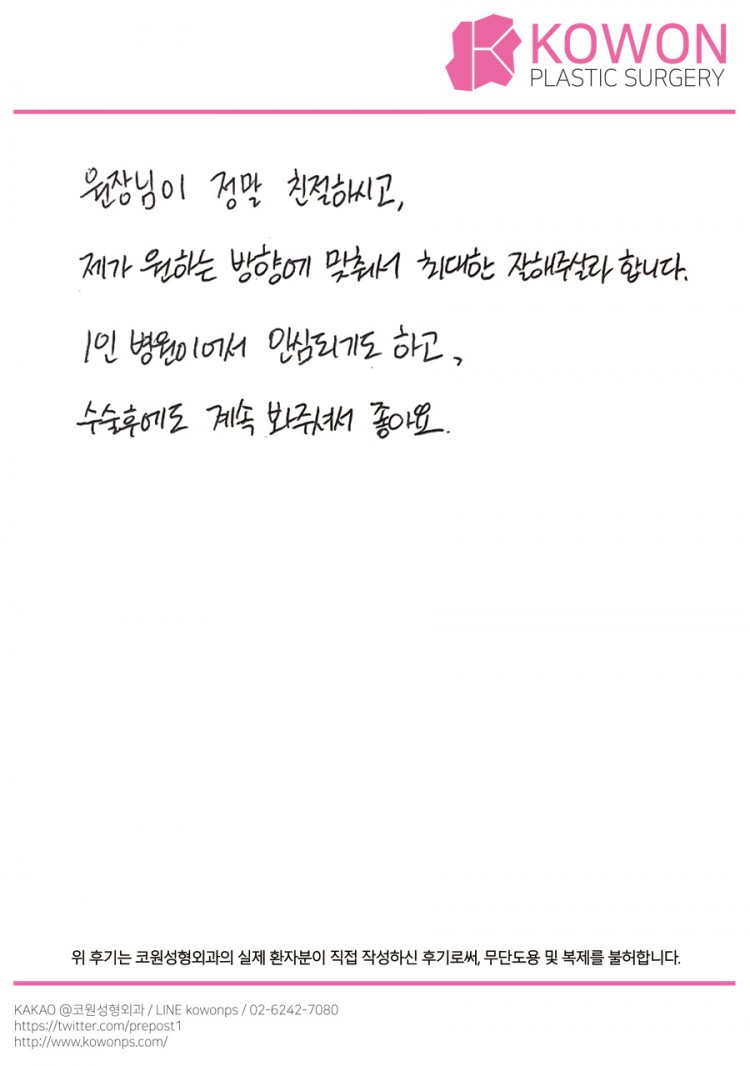 KOWON
PLASTIC SURGERY
원장님이 정말 친절하시고,
제가 원하는 방향에 맞춰서 최대한 잘해주실라 합니다.
1인 병원이어서 안심되기도 하고,
수술후에도 계속 봐주셔서 좋아요.
위 후기는 코원성형외과의 실제 환자분이 직접 작성하신 후기로써, 무단도용 및 복제를 불허합니다.
KAKAO @코원성형외과 / LINE kowonps / 02-6242-7080
https://twitter.com/prepost1
http://www.kowonps.com/